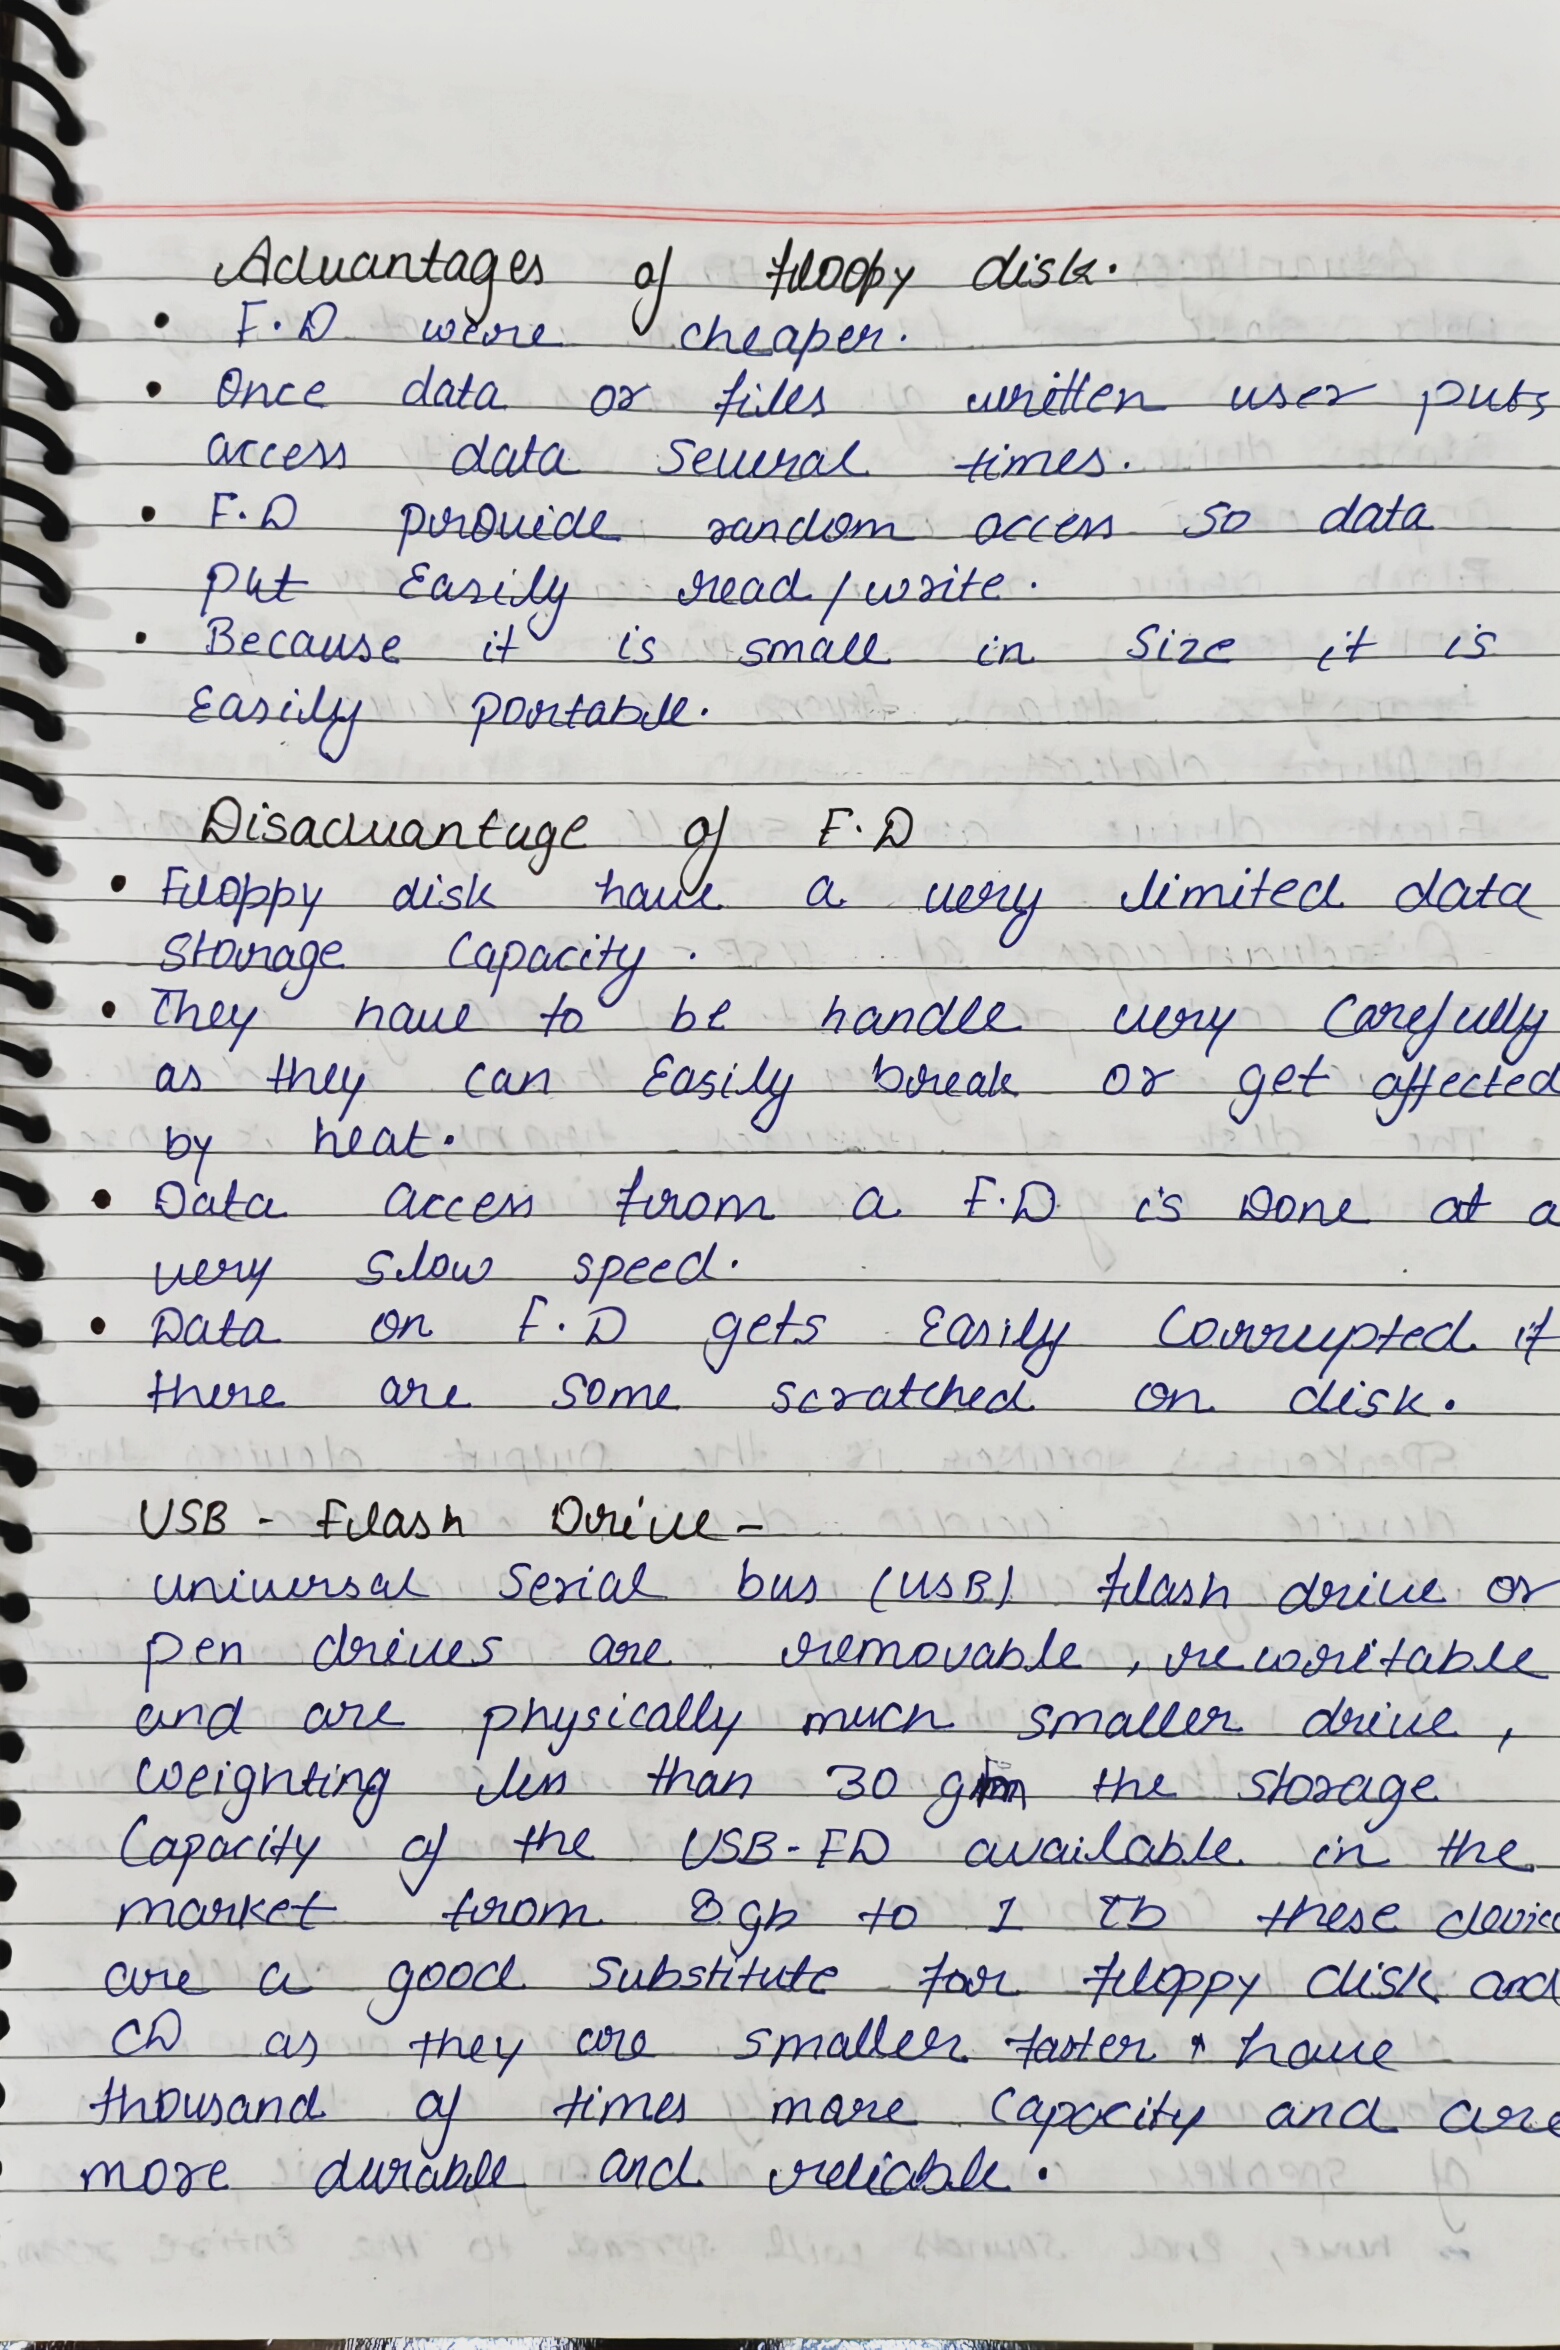 Advantages of floopy disk.
• F.D were cheaper.
• Once data or files written user puts
access data several times.
• F.D provide random access so data
put Easily read/write.
• Because it is small in size it is
Easily portable.
Disadvantage of F.D
• Floppy disk have a very limited data
Storage Capacity.
• They have to be handle very Carefully
as they can Easily break or get affected
by heat.
• Data access from a F.D is Done at a
very slow speed.
• Data on F.D gets Easily Corrupted if
there are some scratched on disk.
USB - Flash Drive -
universal Serial bus (USB) flash drive or
pen drives are removable, rewritable
and are physically much smaller drive,
weighting less than 30 gm the storage
Capacity of the USB-FD available in the
market from 8 gb to 1 Tb these device
are a good substitute for floppy disk and
CD as they are smaller faster have
thousand of times more Capacity and are
more durable and reliable.